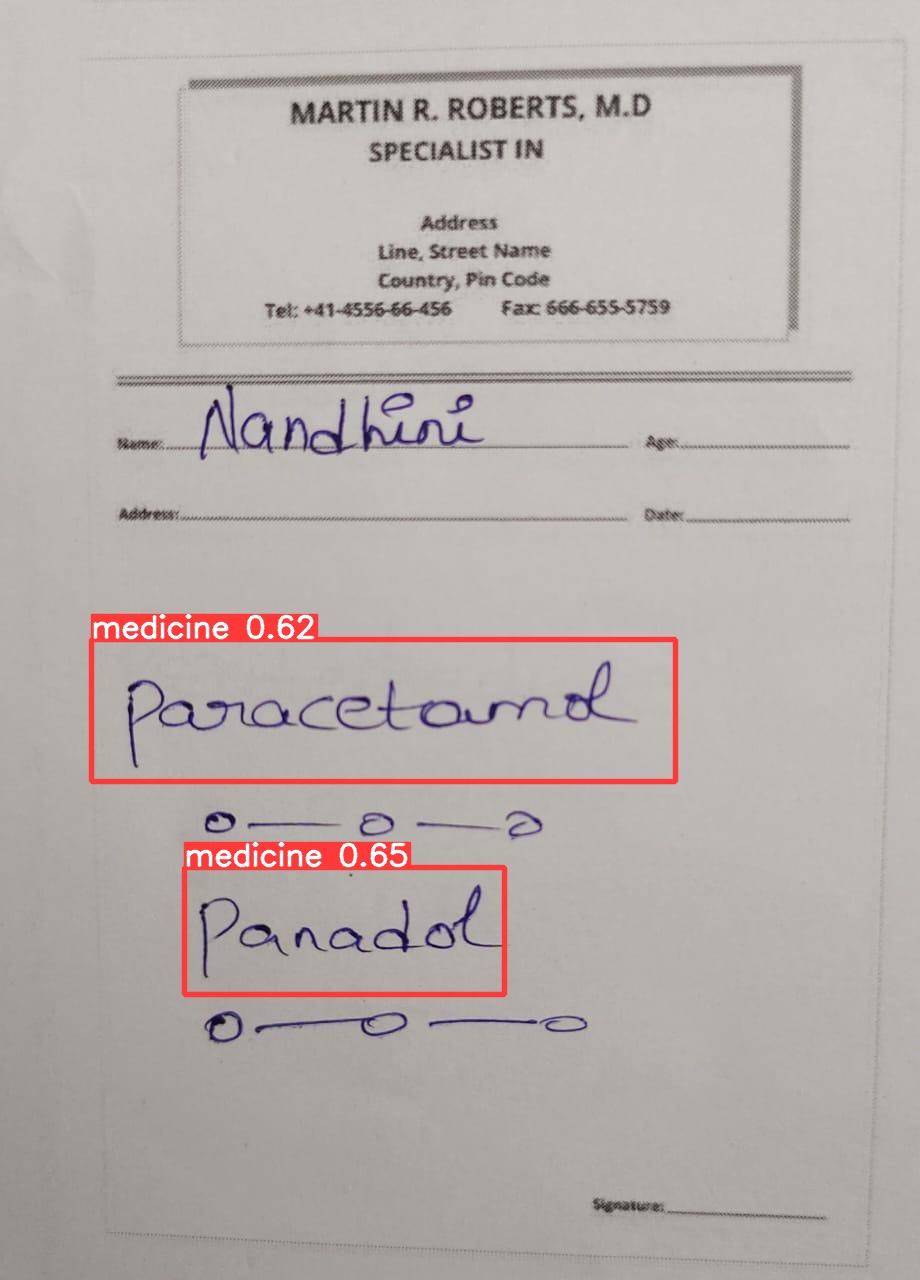 MARTIN R. ROBERTS, M.D
SPECIALIST IN
Address
Line, Street Name
Country, Pin Code
Tel: +41-4556-66-456 Fax: 666-655-5759
Name: Nandhini Age:
Address: Date:
medicine 0.62
Paracetamol
o — o — o
medicine 0.65
Panadol
o — o — o
Signature: